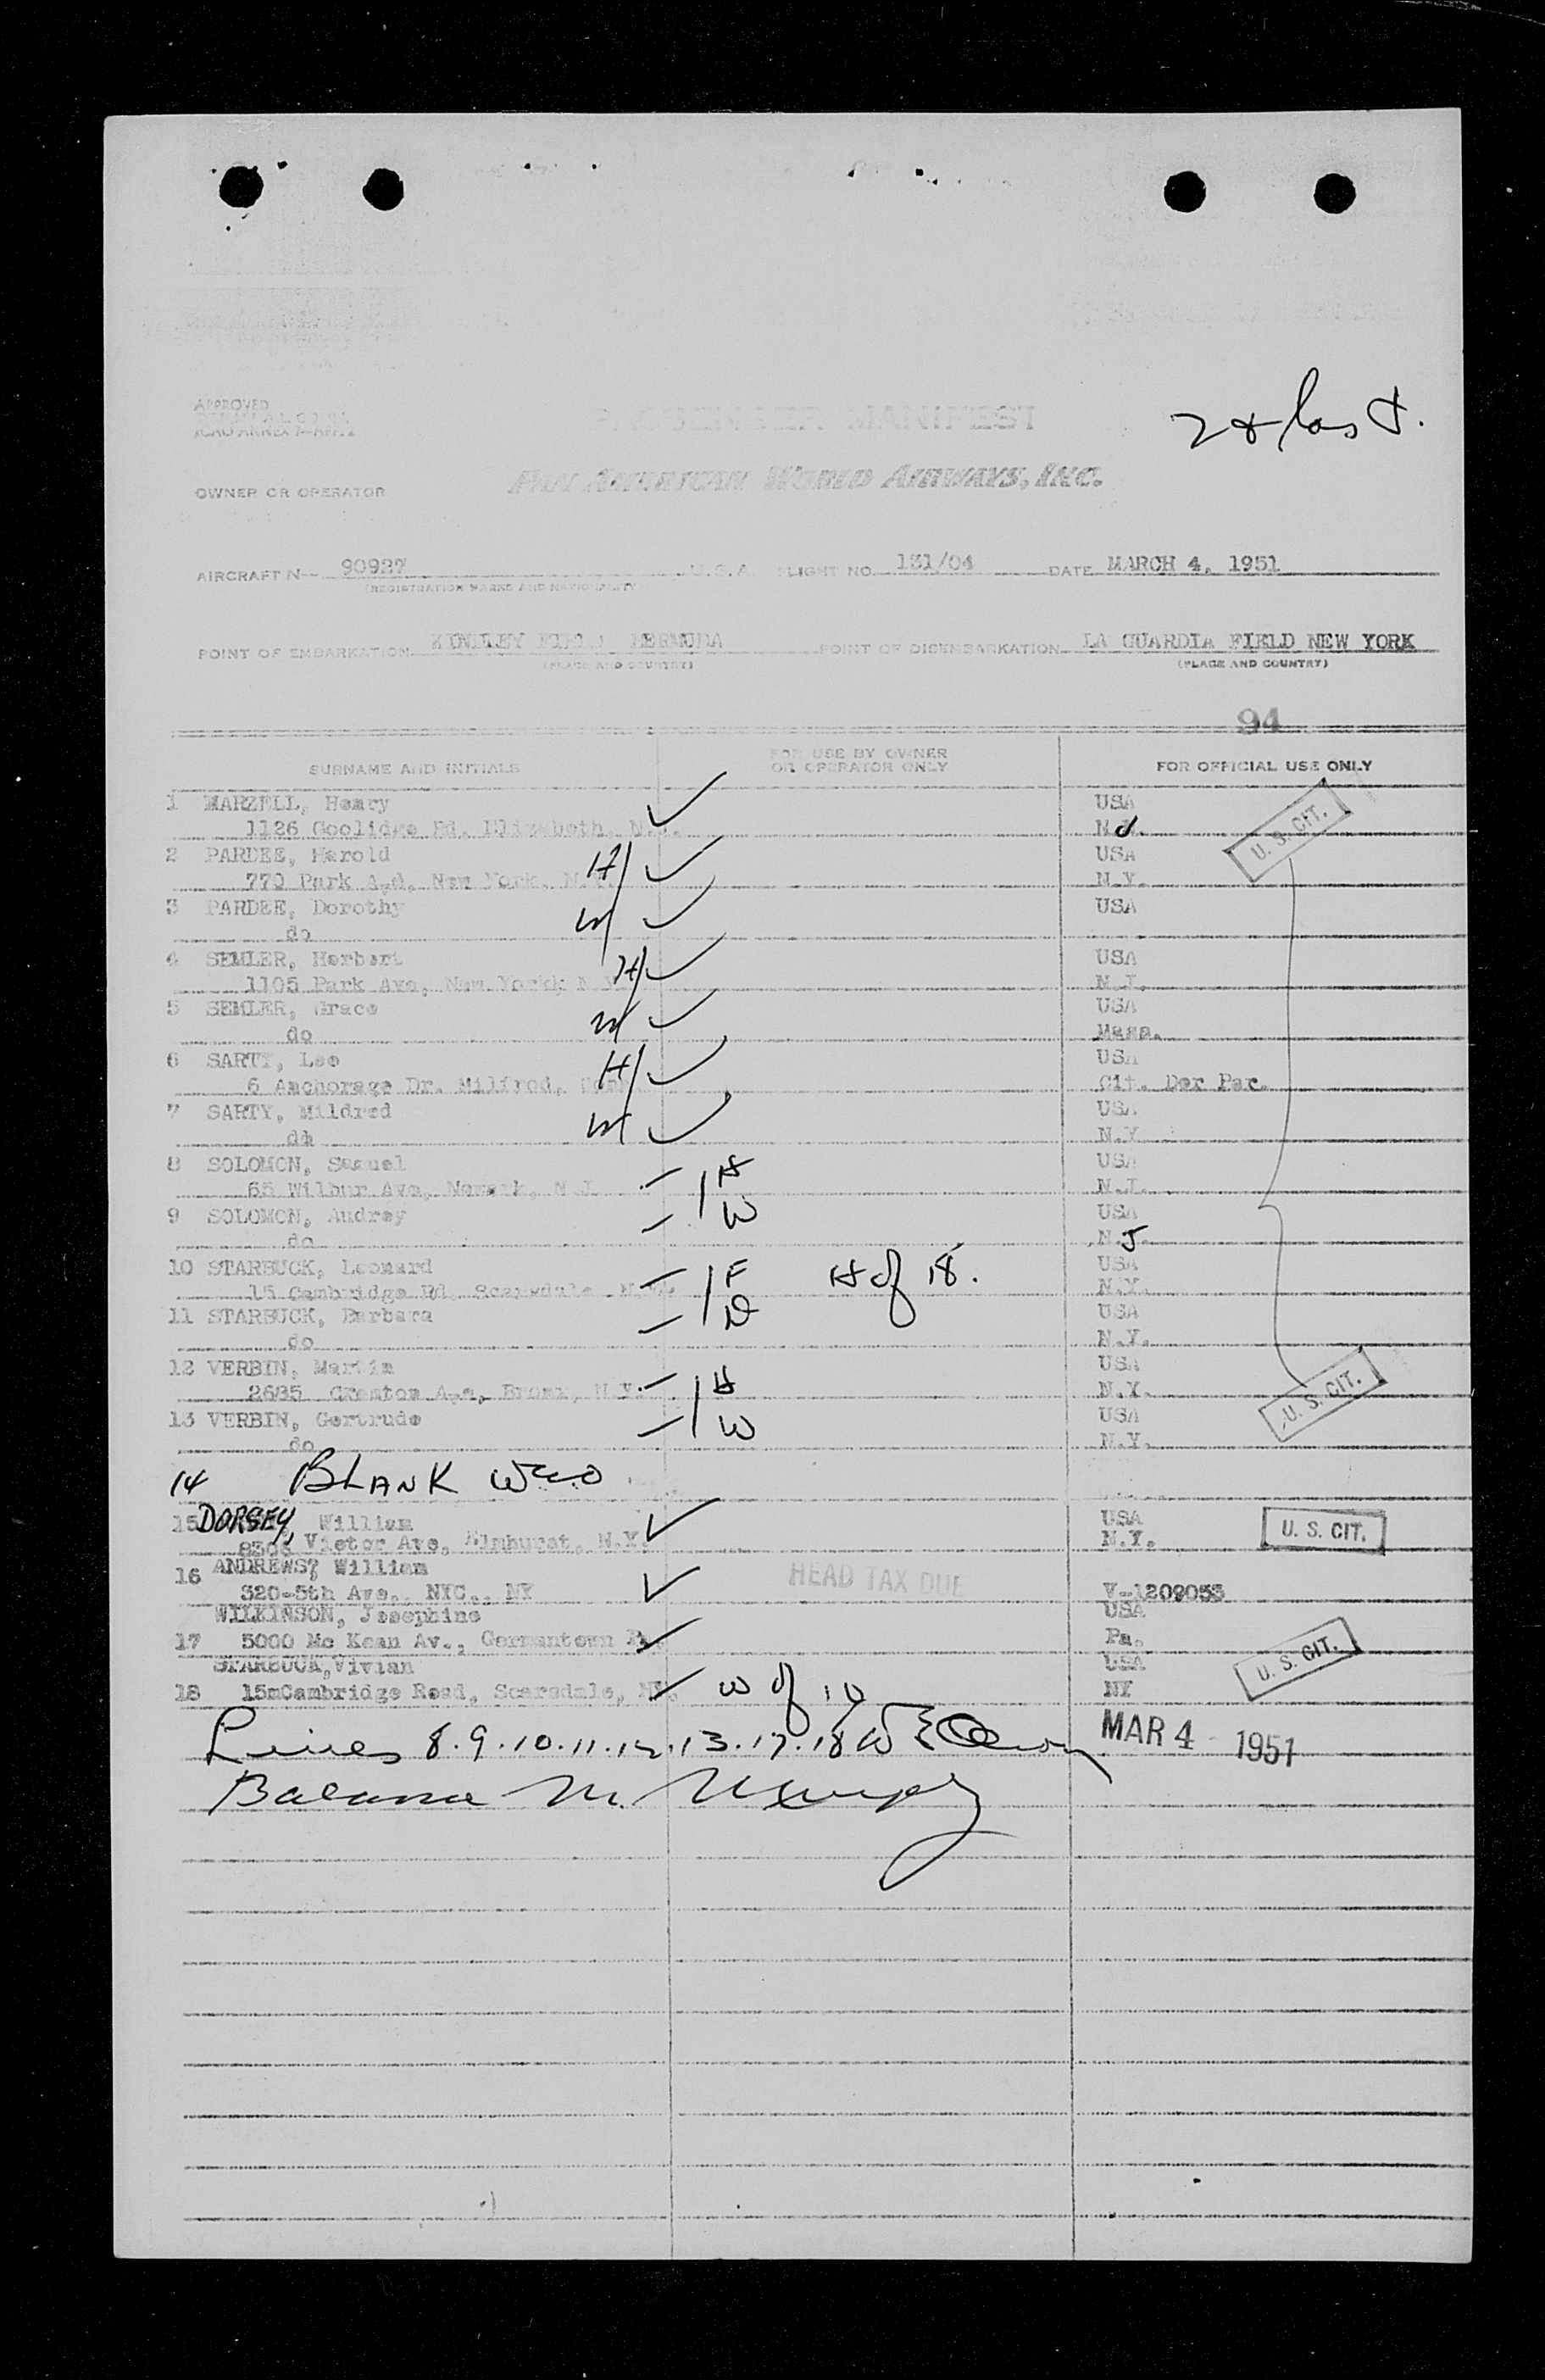 2 & last.
APPROVED
ICAO ANNEX 9-APP. 2
PASSENGER MANIFEST
OWNER OR OPERATOR
PAN AMERICAN WORLD AIRWAYS, INC.
AIRCRAFT N-- 90927 U.S.A. FLIGHT NO. 131/04 DATE MARCH 4, 1951
(REGISTRATION MARKS AND NATIONALITY)
POINT OF EMBARKATION KINDLEY FIELD BERMUDA POINT OF DISEMBARKATION LA GUARDIA FIELD NEW YORK
(PLACE AND COUNTRY) (PLACE AND COUNTRY)
94
SURNAME AND INITIALS FOR USE BY OWNER OR OPERATOR ONLY FOR OFFICIAL USE ONLY
1 MARZELL, Henry ✓ USA U. S. CIT.
1126 Coolidge Rd. Elizabeth, N.J. N.J.
2 PARDEE, Harold H ✓ USA
770 Park Ave, New York, N.Y. N.Y.
3 PARDEE, Dorothy W ✓ USA
do
4 SEMLER, Herbert H ✓ USA
1105 Park Ave, New Yorkk N.Y. N.J.
5 SEMLER, Grace W ✓ USA
do Mass.
6 SARTY, Leo H ✓ USA
6 Anchorage Dr. Milfrod, Conn Cit. Der Par.
7 SARTY, Mildred W ✓ USA
do N.Y.
8 SOLOMON, Samuel H USA
65 Wilbur Ave, Newark, N J N.J.
9 SOLOMON, Audrey W USA
do N.J.
10 STARBUCK, Leonard F H of 18. USA
15 Cambridge Rd Scarsdale N.Y. N.Y.
11 STARBUCK, Barbara D USA
do N.Y.
12 VERBIN, Martin H USA
2685 Creston Ave, Bronx, N.Y. N.Y. U. S. CIT.
13 VERBIN, Gertrude W USA
do N.Y.
14 BLANK
15 DORSEY, William ✓ USA U. S. CIT.
8306 Vietor Ave, Elmhurst, N.Y. N.Y.
16 ANDREWS, William HEAD TAX DUE
320-5th Ave., NYC., NY ✓ V-1209053
WILKINSON, Josephine USA
17 5000 Mc Kean Av., Germantown Pa. ✓ Pa.
STARBUCK, Vivian USA U. S. CIT.
18 15mCambridge Road, Scarsdale, NY. ✓ W of 10 NY
Lines 8.9.10.11.12.13.17.18 MAR 4 1951
Balance M. Murphy